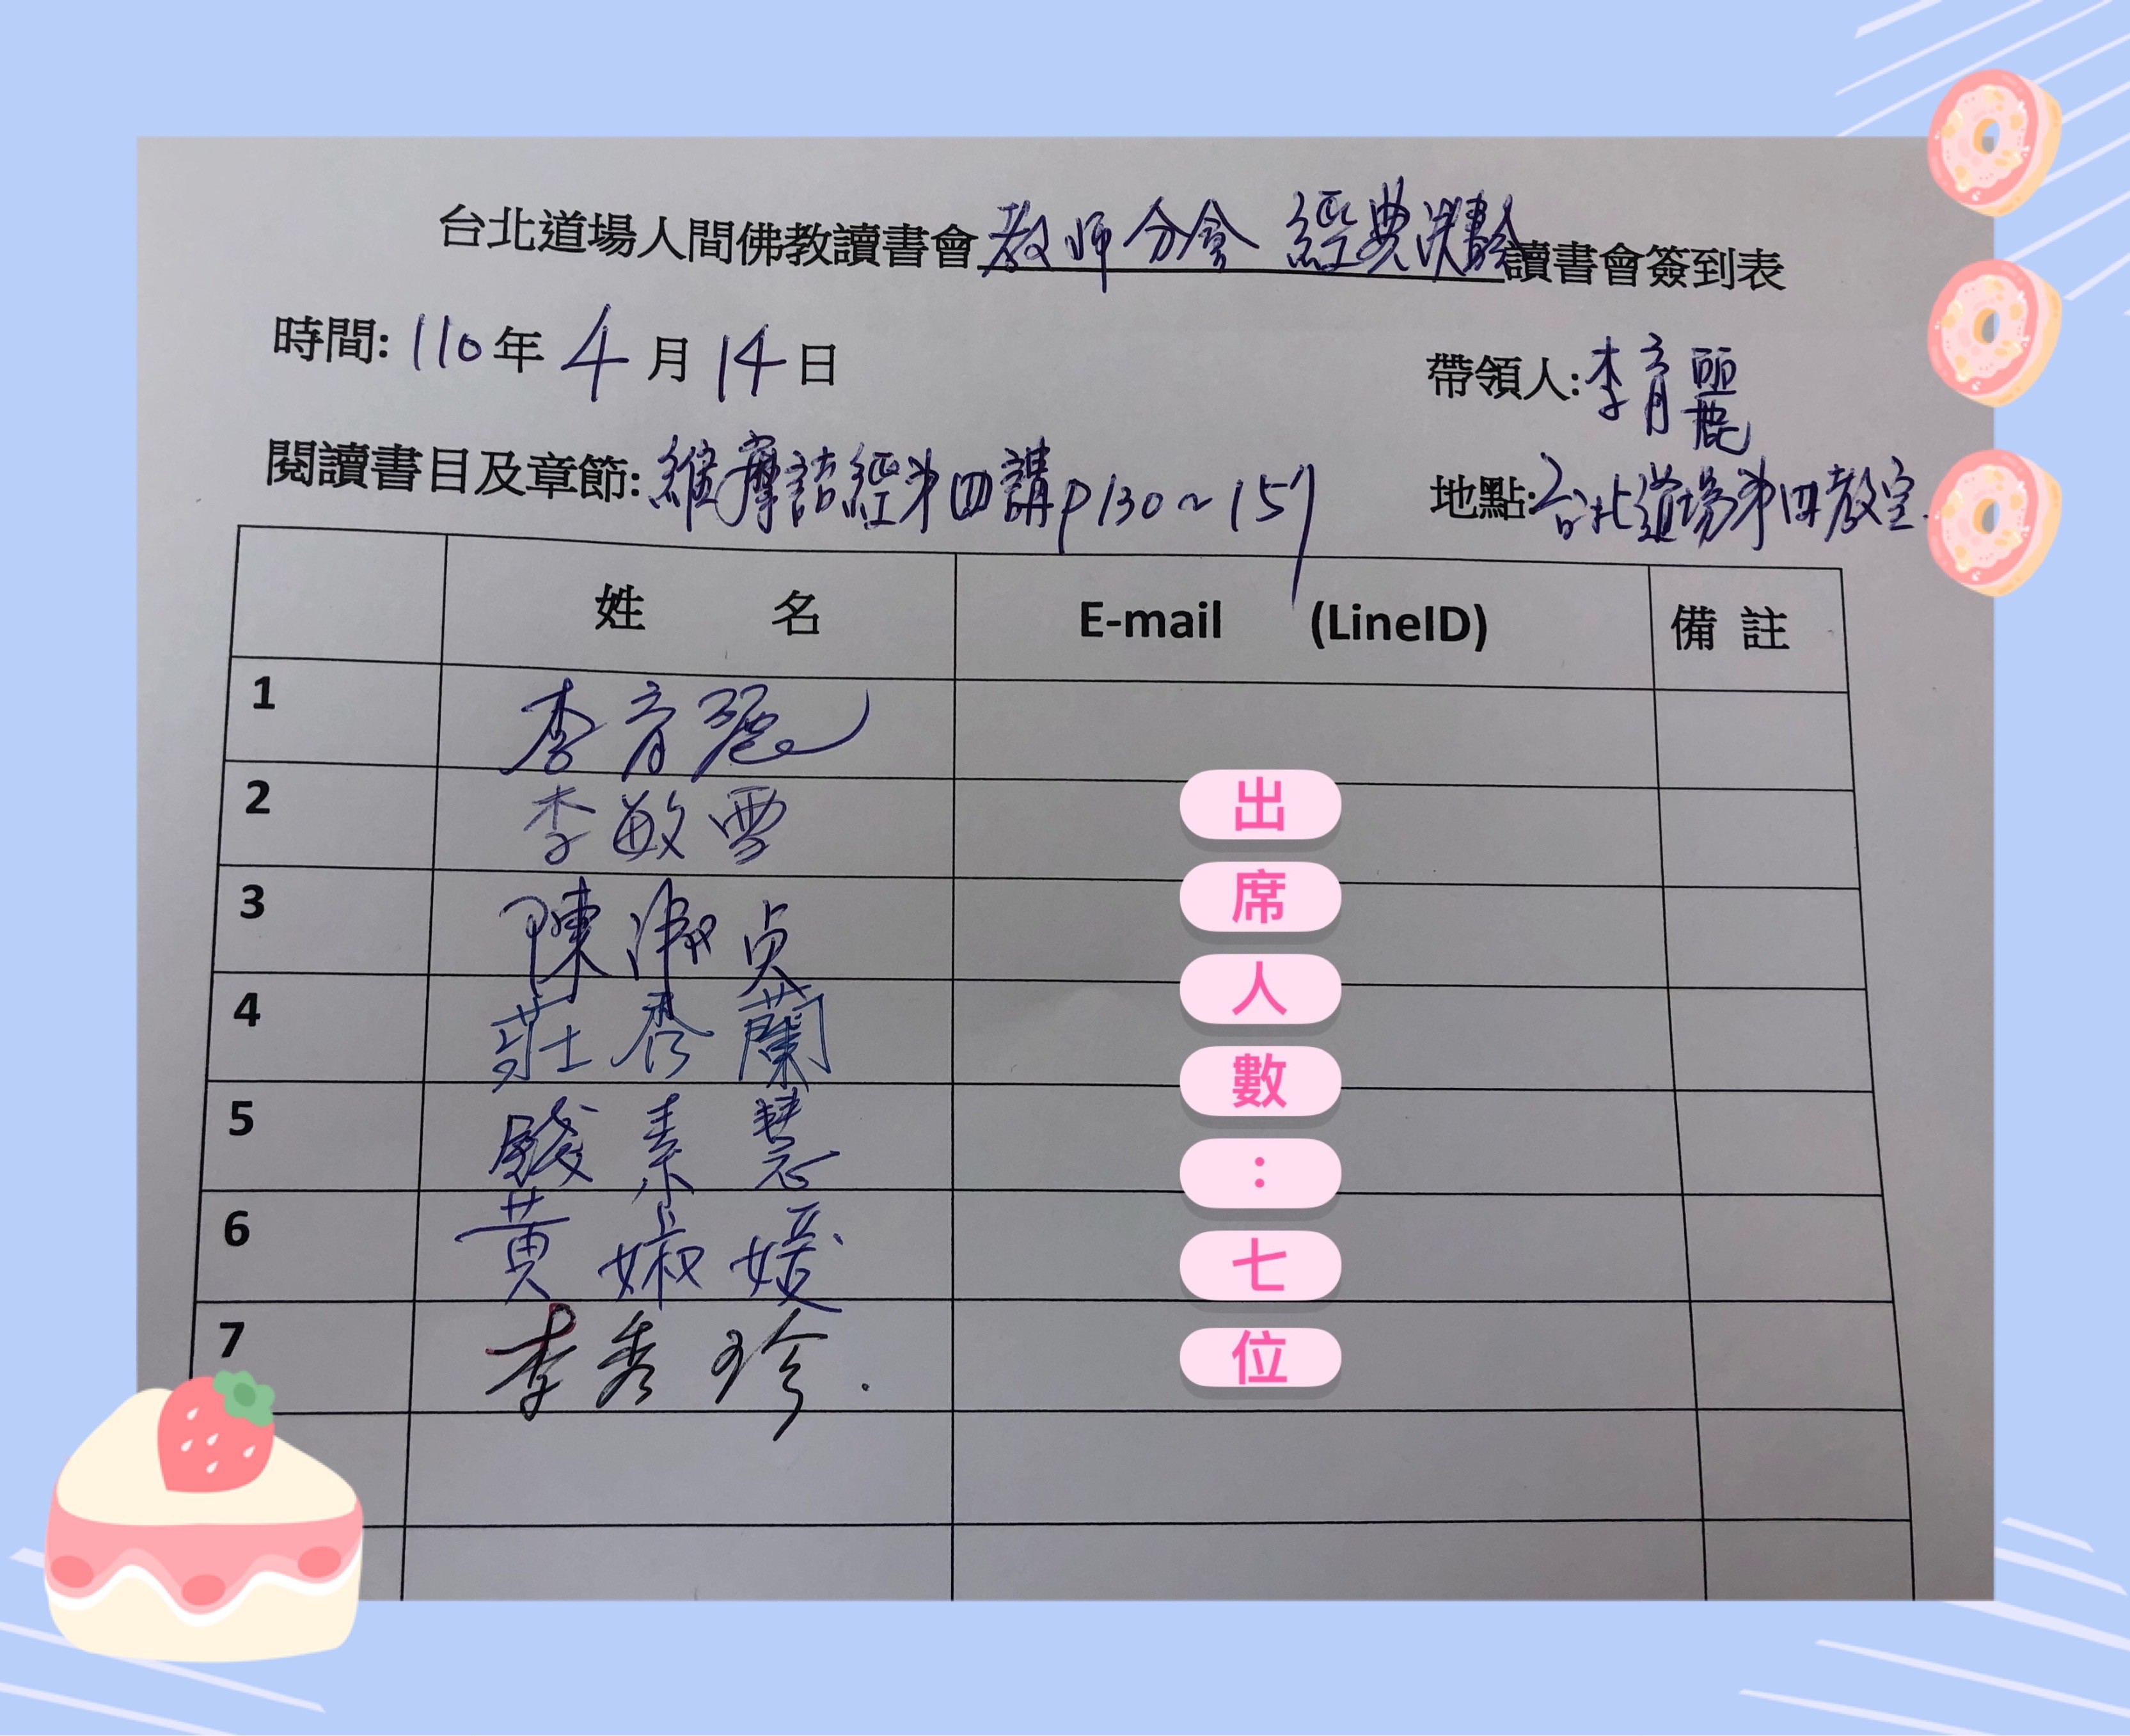 台北道場人間佛教讀書會 教師分會 經典 讀書會簽到表
時間: 110年 4月 14日
帶領人: 李育麗
閱讀書目及章節: 維摩詰經第四講 p130~157
地點: 台北道場第四教室.
姓 名 E-mail (LineID) 備 註
1 李育麗
2 李敏雪
3 陳淑貞
4 莊秀蘭
5 錢素慧
6 黃婌媛
7 李秀珍.
出
席
人
數
:
七
位